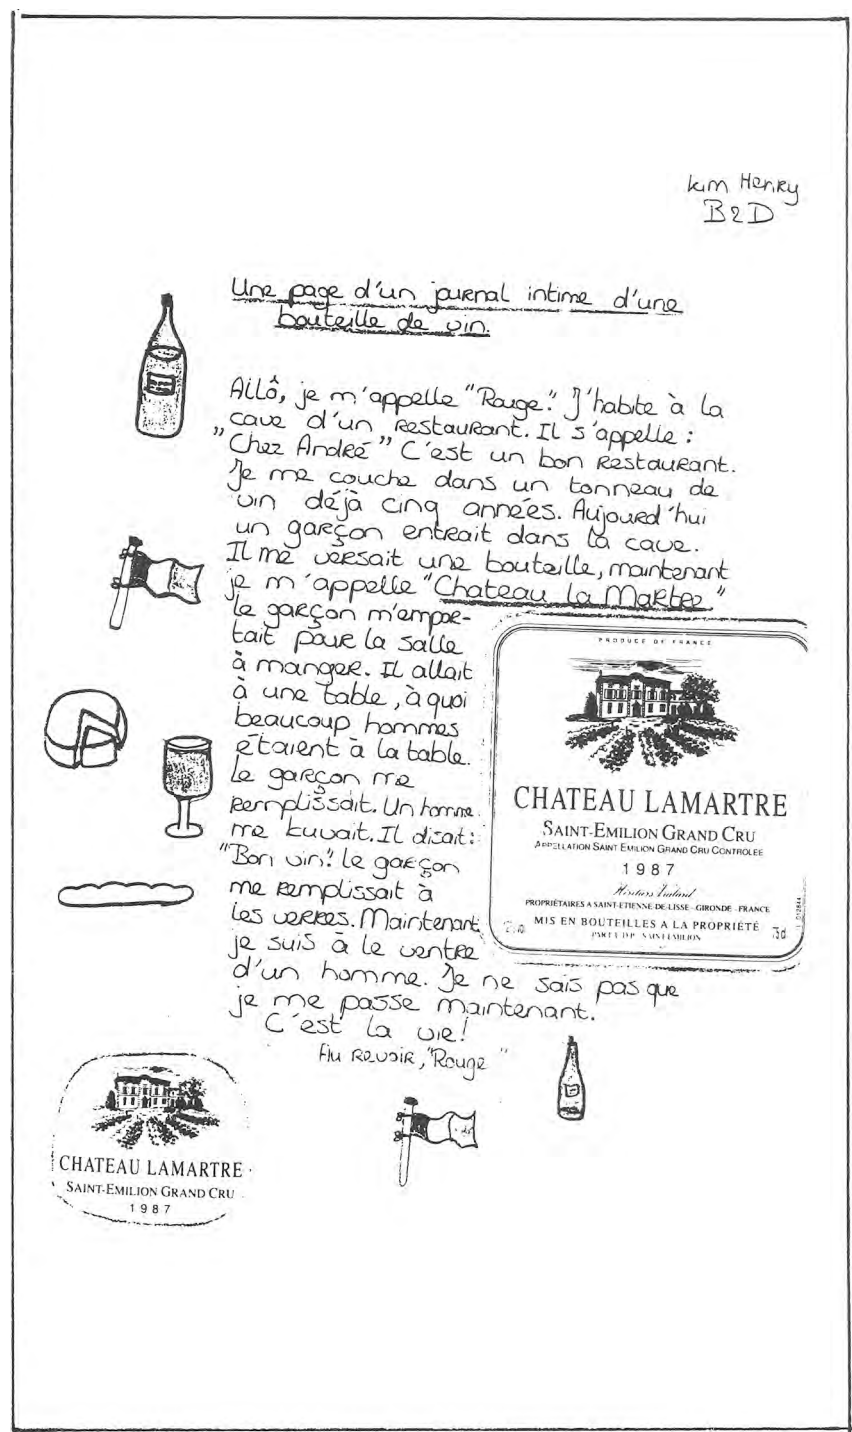 Kim Henry
B2D
Une page d'un journal intime d'une
bouteille de vin.
Allô, je m'appelle "Rouge". J'habite à la
cave d'un restaurant. Il s'appelle :
„Chez André" C'est un bon restaurant.
Je me couche dans un tonneau de
vin déjà cinq années. Aujourd'hui
un garçon entrait dans la cave.
Il me versait une bouteille, maintenant
je m'appelle "Chateau la Martre"
le garçon m'empor-
tait pour la salle
à manger. Il allait
à une table, à quoi
beaucoup hommes
étaient à la table.
Le garçon me
remplissait. Un homme
me buvait. Il disait:
"Bon vin". le garçon
me remplissait à
les verres. Maintenant
je suis à le ventre
d'un homme. Je ne sais pas que
je me passe maintenant.
C'est la vie!
Au revoir, "Rouge"
PRODUCE OF FRANCE
CHATEAU LAMARTRE
SAINT-EMILION GRAND CRU
APPELLATION SAINT EMILION GRAND CRU CONTROLEE
1987
PROPRIÉTAIRES A SAINT-ETIENNE-DE-LISSE - GIRONDE - FRANCE
MIS EN BOUTEILLES A LA PROPRIÉTÉ
CHATEAU LAMARTRE
SAINT-EMILION GRAND CRU
1987